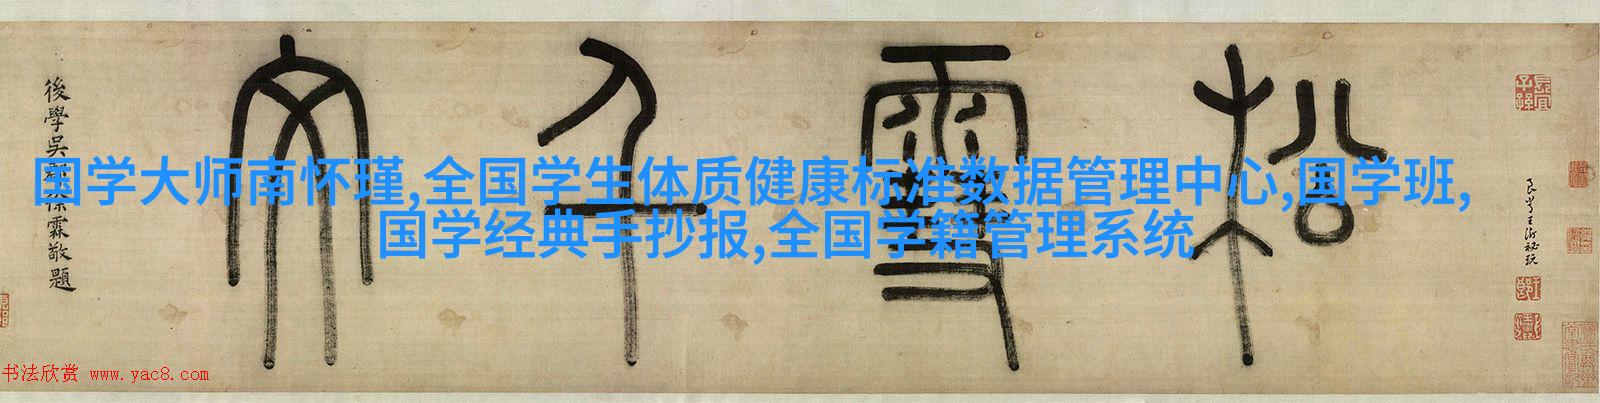 松雪千文
後學吳郡徐霖敬題
国学大师南怀瑾,全国学生体质健康标准数据管理中心,国学班,
国学经典手抄报,全国学籍管理系统
书法欣赏 www.yac8.com